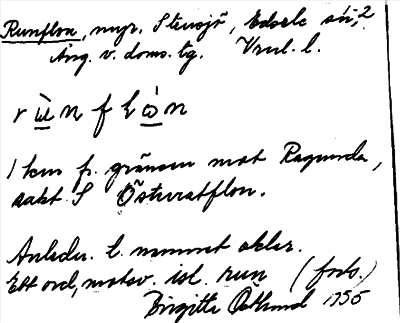 Runflon, myr, Stensjö, Edsele sn, 2
Ång. v. doms. tg. Vnl. l.
r ù n f l ò n
1 km fr. gränsen mot Ragunda,
sakt S Östervatflon.
Anledn. t. namnet okler.
Ett ord, motsv. isl. run (forts.)
Birgitta Östlund 1955